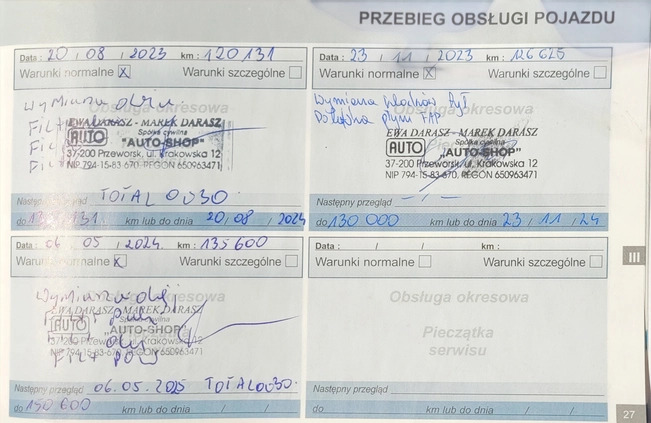 PRZEBIEG OBSŁUGI POJAZDU
Data : 20 / 08 / 2023 km : 120 131
Warunki normalne X Warunki szczególne
Wymiana oleju
Obsługa okresowa
Filt
EWA DARASZ - MAREK DARASZ
Spółka cywilna
AUTO "AUTO-SHOP"
37-200 Przeworsk, ul. Krakowska 12
NIP 794-15-83-670, REGON 650963471
Następny przegląd TOTAL 0W30
do km lub do dnia 20 / 08 / 2024
Data : 23 / 11 / 2023 km : 126 625
Warunki normalne X Warunki szczególne
Wymiana klocków tył
Obsługa okresowa
płyn FAP
EWA DARASZ - MAREK DARASZ
Spółka cywilna
AUTO "AUTO-SHOP"
37-200 Przeworsk, ul. Krakowska 12
NIP 794-15-83-670, REGON 650963471
Następny przegląd -/-
do 130 000 km lub do dnia 23 / 11 / 24
Data : 06 / 05 / 2024 km : 135 600
Warunki normalne X Warunki szczególne
Wymiana olej
Obsługa okresowa
EWA DARASZ - MAREK DARASZ
Spółka cywilna
AUTO "AUTO-SHOP"
37-200 Przeworsk, ul. Krakowska 12
NIP 794-15-83-670, REGON 650963471
Filt pow
Następny przegląd 06.05.2025 TOTAL 0W30.
do 150 600 km lub do dnia / /
Data : / / km :
Warunki normalne Warunki szczególne
Obsługa okresowa
Pieczątka
serwisu
Następny przegląd
do km lub do dnia / /
III
27